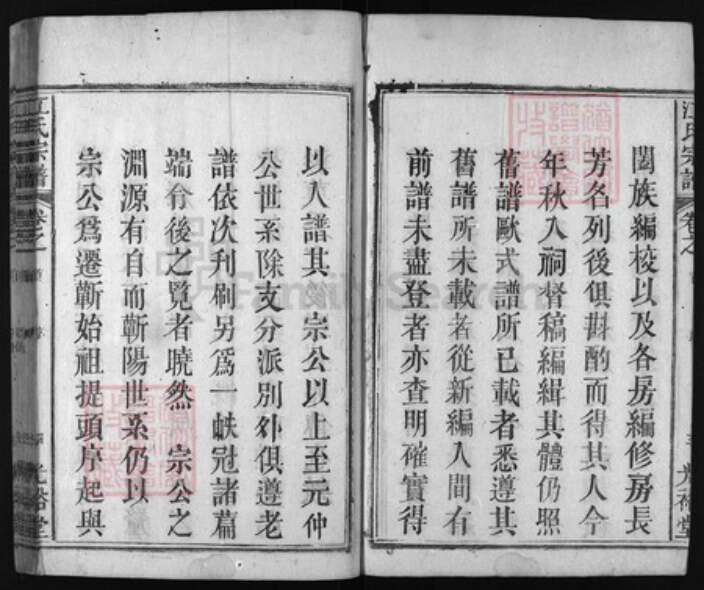 闔族編校以及各房編修房長
芳名列後俱斟酌而得其人今
年秋入祠督稿編緝其體仍照
舊譜歐式譜所已載者悉遵其
舊譜所未載者從新編入間有
前譜未盡登者亦查明確實得
以入譜其後宗公以上至元仲
公世系除支分派別外俱遵老
譜依次刋刷另爲一帙冠諸篇
端令後之覧者曉然 宗公之
淵源有自而蘄陽世系仍以
宗公爲遷蘄始祖提頭序起與
江氏宗譜
卷之
光裕堂
江氏宗譜
卷之一
光裕堂
FamilySearch